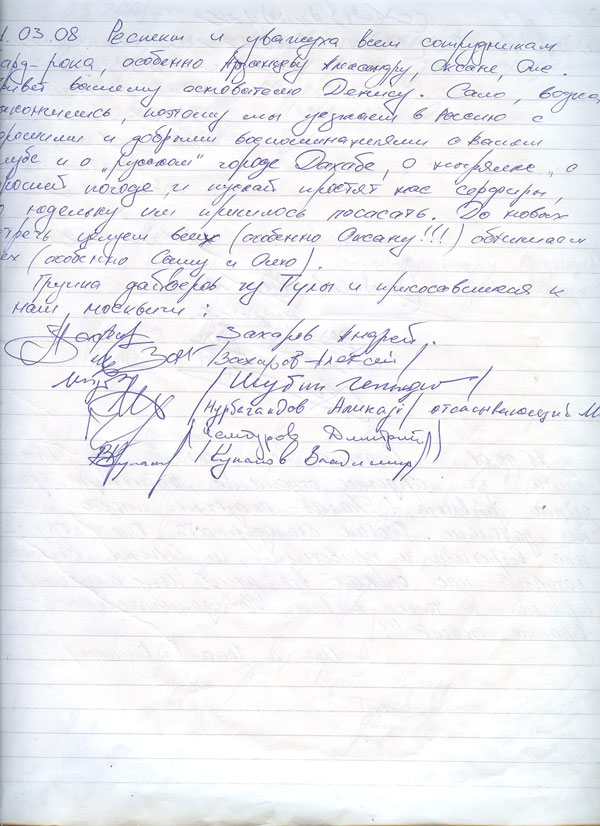 1.03.08 Респект и уважуха всем сотрудникам
ард-рока, особенно Александру, Оксане, Оле.
ивет вашему основателю Денису. Сало, водка
акончились, поэтому мы уезжаем в Россию с
орошими и добрыми воспоминаниями о вашем
лубе и о "русском" городе Дахабе, о нырялке, о
рошей погоде, и пускай простят нас сёрферы,
о недельку им пришлось пососать. До новых
стреч целуем всех (особенно Оксану!!!) обнимаем
ех (особенно Сашу и Олю).
Группа дайверов из Тулы и присосавшиеся к
нам москвичи:
Захаров Андрей.
/Захаров Алексей/
/Шубин Геннадий/
/Нурбагандов Аликади/
Дмитрий/
/Купанов Владимир/